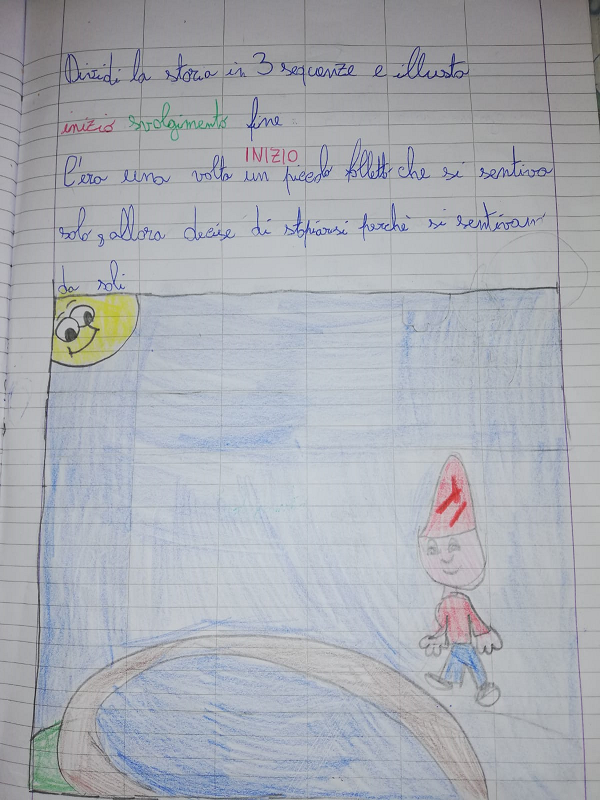 Dividi la storia in 3 sequenze e illustra
inizio svolgimento fine.
INIZIO
C'era una volta un piccolo folletto che si sentiva
solo, allora decise di perché si sentivan
da soli